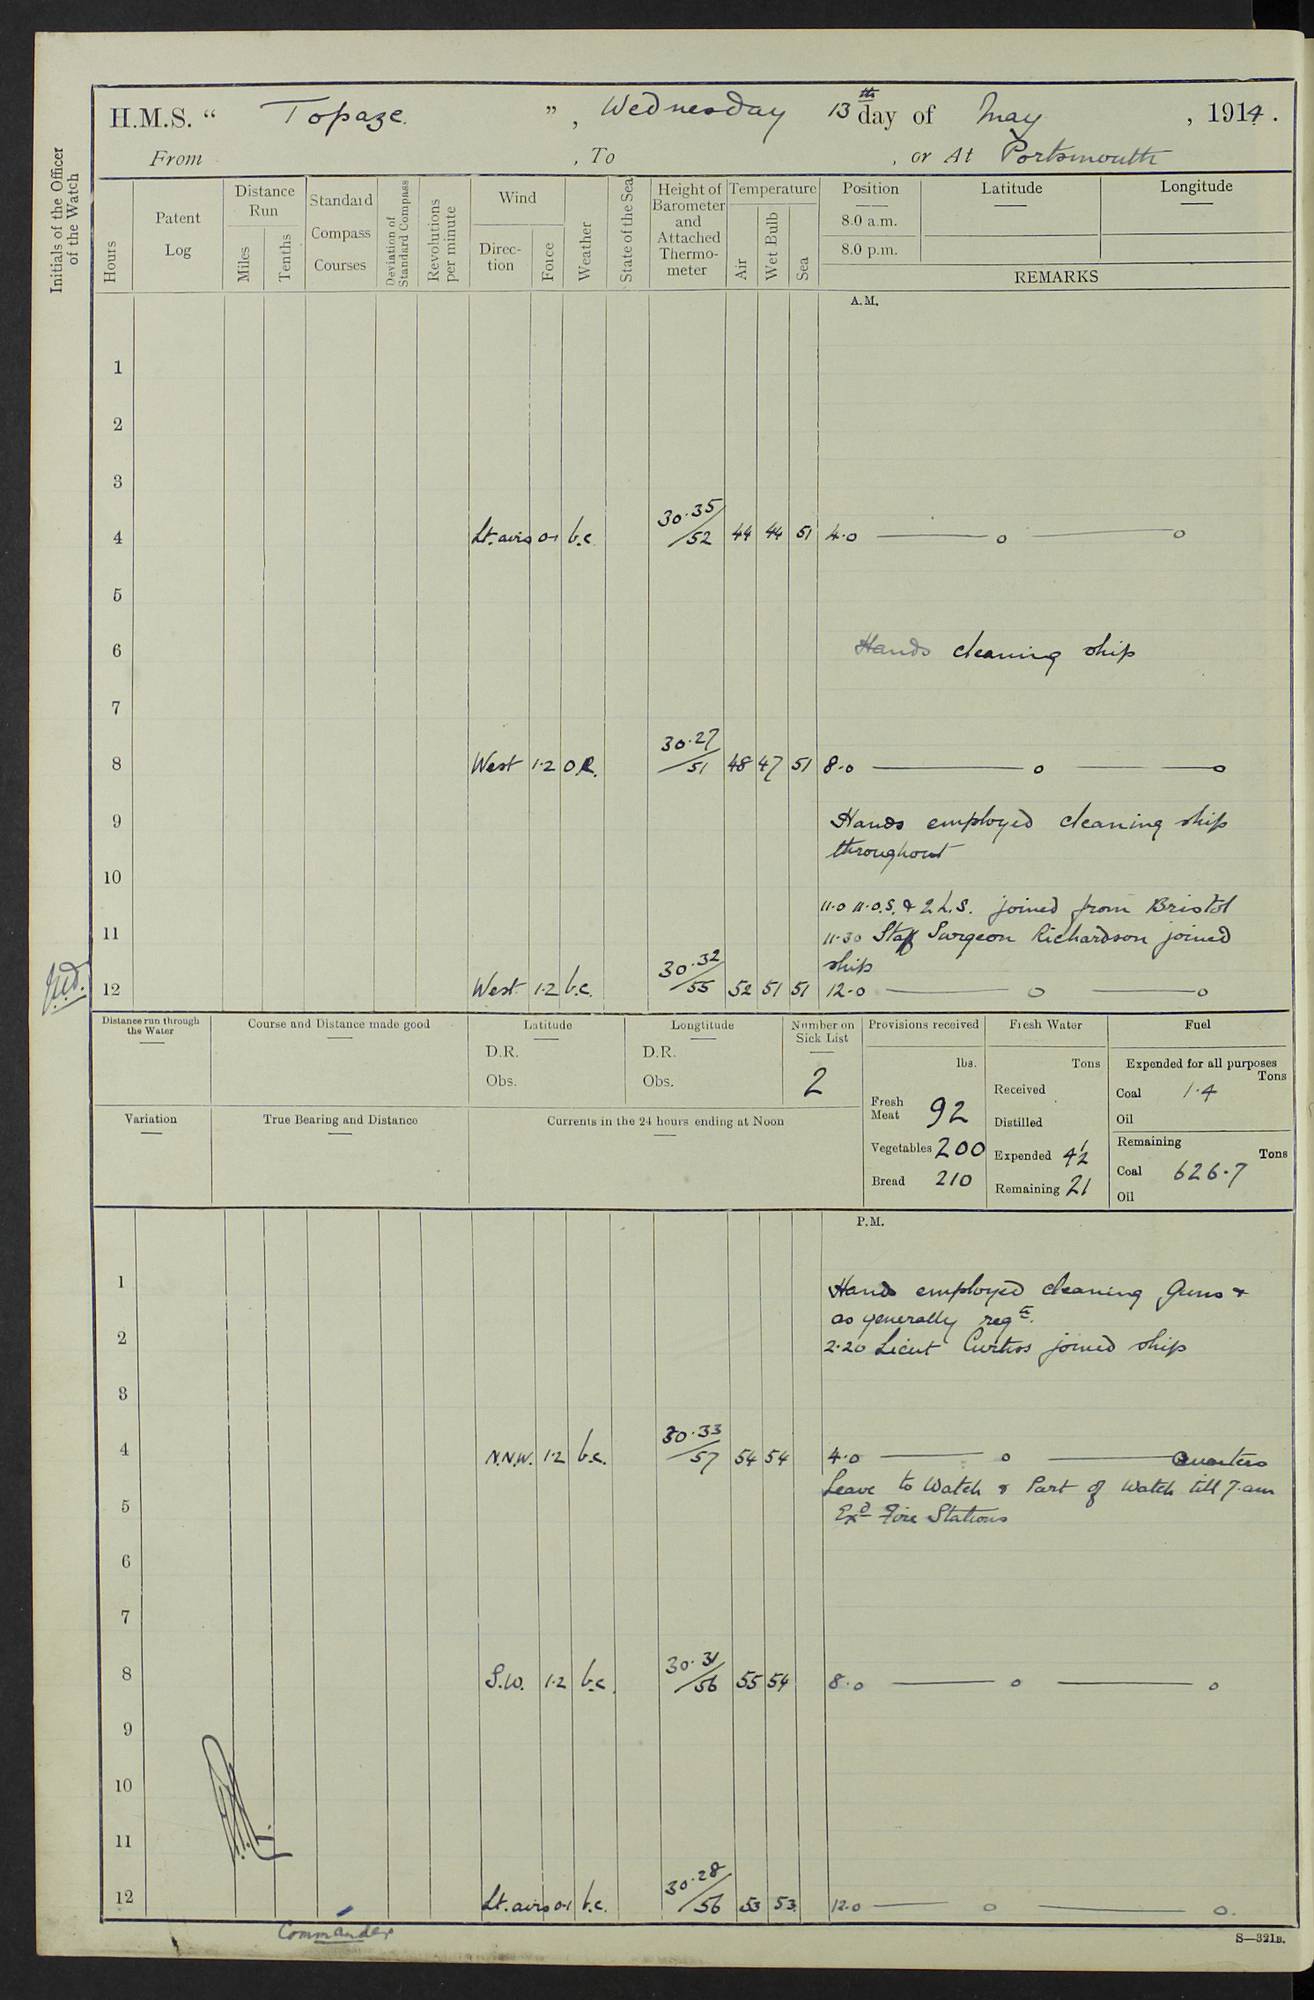 H.M.S. “ Topaze ”, Wednesday 13th day of May, 1914.
From , To , or At Portsmouth
Initials of the Officer of the Watch
Hours
Patent Log
Distance Run
Miles
Tenths
Standard Compass Courses
Deviation of Standard Compass
Revolutions per minute
Wind
Direc-tion
Force
Weather
State of the Sea
Height of Barometer and Attached Thermo-meter
Temperature
Air
Wet Bulb
Sea
Position
8.0 a.m.
8.0 p.m.
Latitude
Longitude
REMARKS
A.M.
1
2
3
4 Lt. airs 0-1 b.c. 30.35/52 44 44 51 4.0 — o — o
5
6 Hands cleaning ship
7
8 West 1-2 O.R. 30.27/51 48 47 51 8.0 — o — o
9 Hands employed cleaning ship
throughout
10
11.0 11.O.S. & 2 L.S. joined from Bristol
11 11.30 Staff Surgeon Richardson joined
ship
12 West 1-2 b.c. 30.32/55 52 51 51 12.0 — o — o
Distance run through the Water
Course and Distance made good
Latitude
D.R.
Obs.
Longtitude
D.R.
Obs.
Number on Sick List
2
Provisions received
lbs.
Fresh Meat 92
Vegetables 200
Bread 210
Fresh Water
Tons
Received
Distilled
Expended 4½
Remaining 21
Fuel
Expended for all purposes
Tons
Coal 1.4
Oil
Remaining
Tons
Coal 626.7
Oil
Variation
True Bearing and Distance
Currents in the 24 hours ending at Noon
P.M.
1 Hands employed cleaning Guns &
as generally reqte.
2 2.20 Lieut Curtios joined ship
3
4 N.N.W. 1-2 b.c. 30.33/57 54 54 4.0 — o — Quarters
Leave to Watch & Part of Watch till 7.am
5 Exd Fire Stations
6
7
8 S.W. 1-2 b.c. 30.31/56 55 54 8.0 — o — o
9
10
11
12 Lt. airs 0-1 b.c. 30.28/56 53 53 12.0 — o — o.
Commander
S—321B.